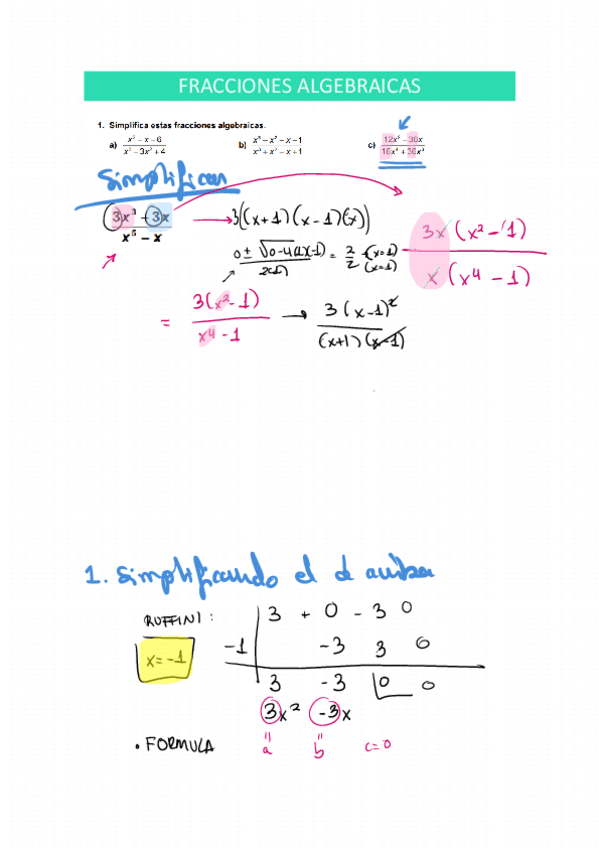 FRACCIONES ALGEBRAICAS
1. Simplifica estas fracciones algebraicas.
a) x² − x − 6 / x³ − 3x² + 4
b) x³ − x² − x − 1 / x³ + x² − x + 1
c) 12x² − 36x / 16x⁴ + 36x³
Simplificar
3x³ − 3x / x⁵ − x
3((x+1)(x-1)(x))
= 2/2 -(x=1) (x=1)
3x(x² − 1) / x(x⁴ − 1)
= 3(x²-1) / x⁴-1 → 3(x-1)² / (x+1)(x-1)
1. Simplificando el de
RUFFINI: 3 + 0 - 3 0
x=-1 -1 -3 3 0
3 -3 0 0
3x² -3x
• FORMULA a b c=0